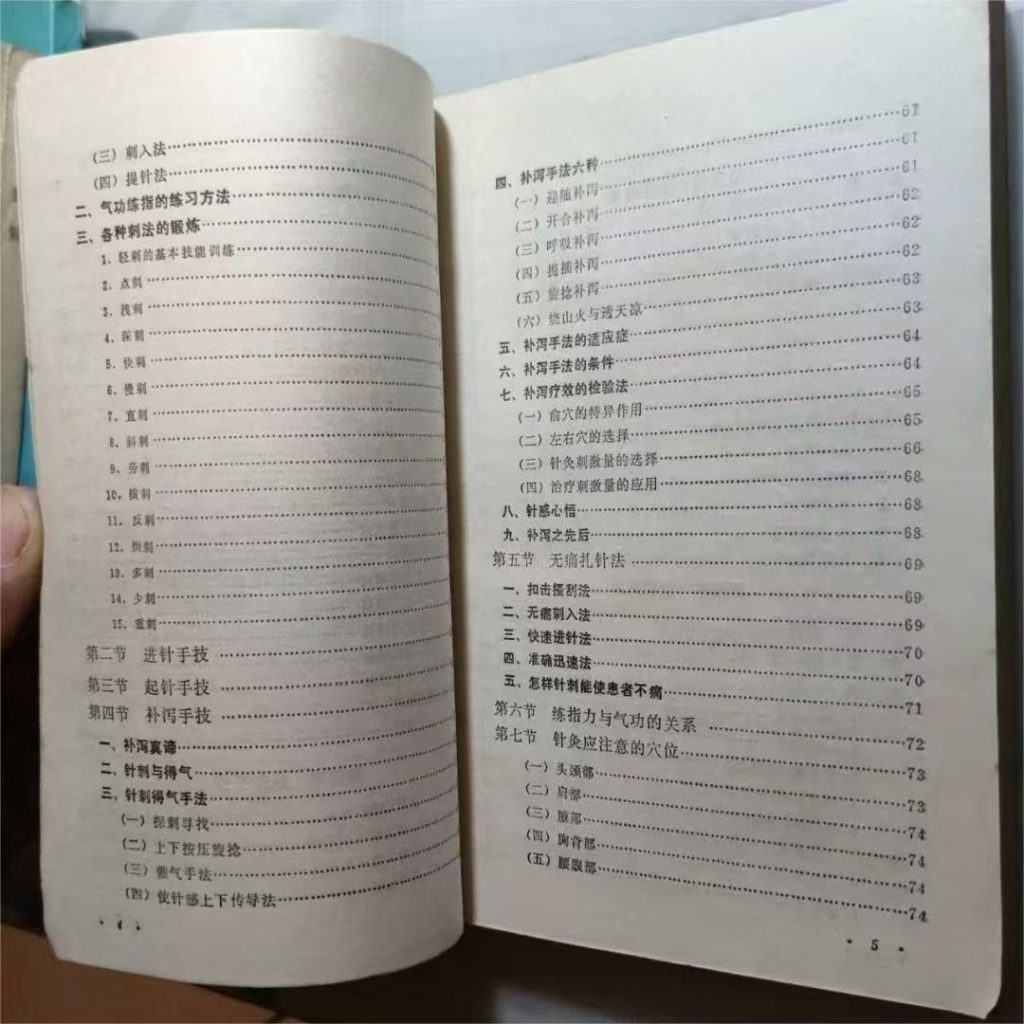 (三) 刺入法
(四) 提针法
二、气功练指的练习方法
三、各种刺法的锻炼
1. 轻刺的基本技能训练
2. 点刺
3. 浅刺
4. 深刺
5. 快刺
6. 慢刺
7. 直刺
8. 斜刺
9. 旁刺
10. 横刺
11. 反刺
12. 倒刺
13. 多刺
14. 少刺
15. 重刺
第二节 进针手技
第三节 起针手技
第四节 补泻手技
一、补泻真谛
二、针刺与得气
三、针刺得气手法
(一) 探刺寻找
(二) 上下按压旋捻
(三) 催气手法
(四) 使针感上下传导法
· 4 ·
四、补泻手法六种……61
(一) 迎随补泻……61
(二) 开合补泻……61
(三) 呼吸补泻……62
(四) 提插补泻……62
(五) 旋捻补泻……62
(六) 烧山火与透天凉
五、补泻手法的适应症……63
六、补泻手法的条件……64
七、补泻疗效的检验法……64
(一) 俞穴的特异作用……65
(二) 左右穴的选择……65
(三) 针灸刺激量的选择……66
(四) 治疗刺激量的应用……68
八、针感心悟……68
九、补泻之先后……68
第五节 无痛扎针法……69
一、扣击搔刮法……69
二、无痛刺入法……69
三、快速进针法……70
四、准确迅速法……70
五、怎样针刺能使患者不痛……71
第六节 练指力与气功的关系……72
第七节 针灸应注意的穴位……73
(一) 头颈部……73
(二) 肩部……74
(三) 腋部……74
(四) 胸背部……74
(五) 腰腹部……74
· 5 ·